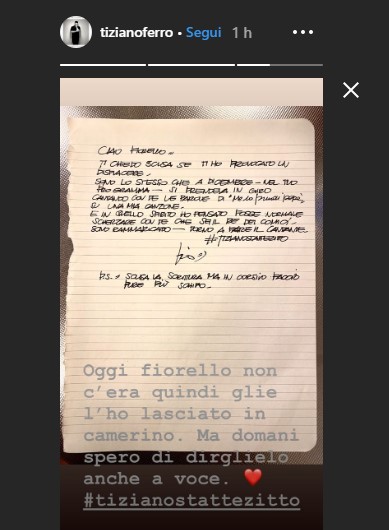 tizianoferro • Segui 1 h
CIAO FIORELLO.
TI CHIEDO SCUSA SE TI HO PROVOCATO UN
DISPIACERE.
SONO LO STESSO CHE A DICEMBRE - NEL TUO
PROGRAMMA - SI PRENDEVA IN GIRO
CANTANDO CON TE LE PAROLE DI
E UNA MIA CANZONE.
E IN QUELLO SPIRITO HO PENSATO FOSSE NORMALE
SCHERZARE CON TE CHE SEI IL RE DEI COMICI.
SONO RAMMARICATO - TORNO A FARE IL CANTANTE.
#TIZIANOSTATTEZITTO
P.S. SCUSA LA SCRITTURA MA IN CORSIVO FACCIO
PURE PIÙ SCHIFO.
Oggi fiorello non
c'era quindi glie
l'ho lasciato in
camerino. Ma domani
spero di dirglielo
anche a voce. ❤️
#tizianostattezitto